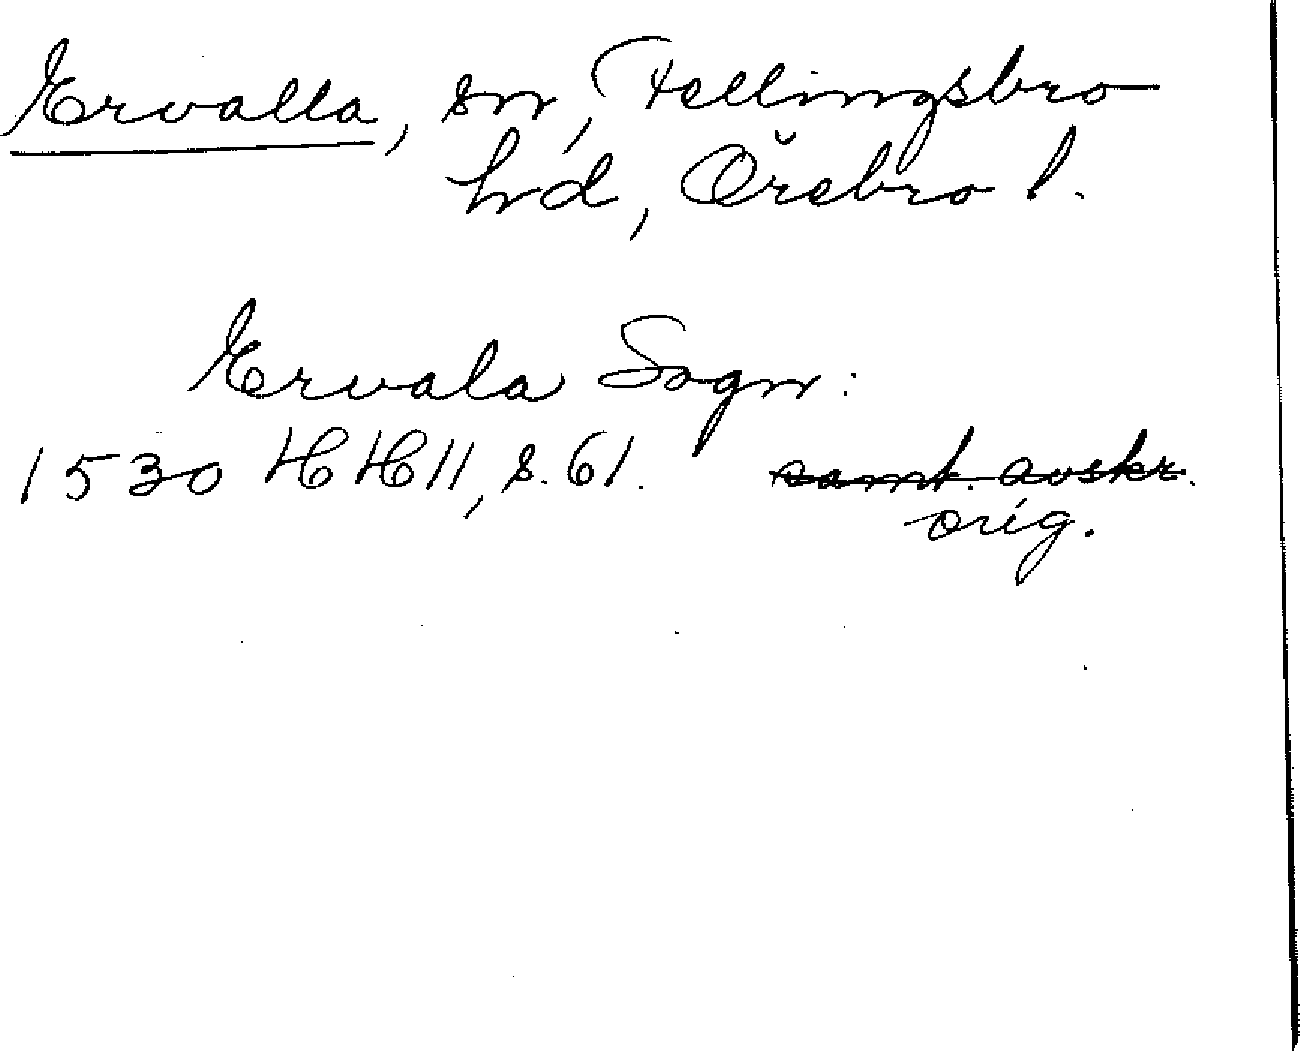 Ervalla, sn, Fellingsbro
hd, Örebro l.
Ervala Sogn:
1530 HH 11, s. 61. samt. avskr.
orig.